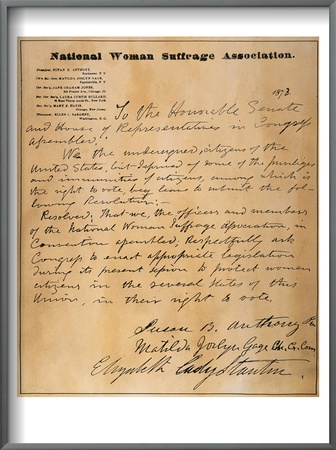 National Woman Suffrage Association.
President, SUSAN B. ANTHONY,
Rochester, N.Y.
MATILDA JOSLYN GAGE,
Fayetteville, N.Y.
JANE GRAHAM JONES,
Chicago, Ill.
LAURA CURTIS BULLARD,
New York
ELLEN C. SARGENT,
Washington, D.C.
1873.
To the Honorable Senate
and House of Representatives in Congress
assembled.
We the undersigned, citizens of the
United States, but deprived of some of the privileges
and immunities of citizens, among which is
the right to vote, beg leave to submit the fol-
lowing Resolution:—
Resolved; That we, the officers and members
of the National Woman Suffrage Association, in
Convention assembled, Respectfully ask
Congress to enact appropriate legislation
during its present session to protect women
citizens in the several States of this
Union, in their right to vote.
Susan B. Anthony
Matilda Joslyn Gage Ch. Ex. Com
Elizabeth Cady Stanton